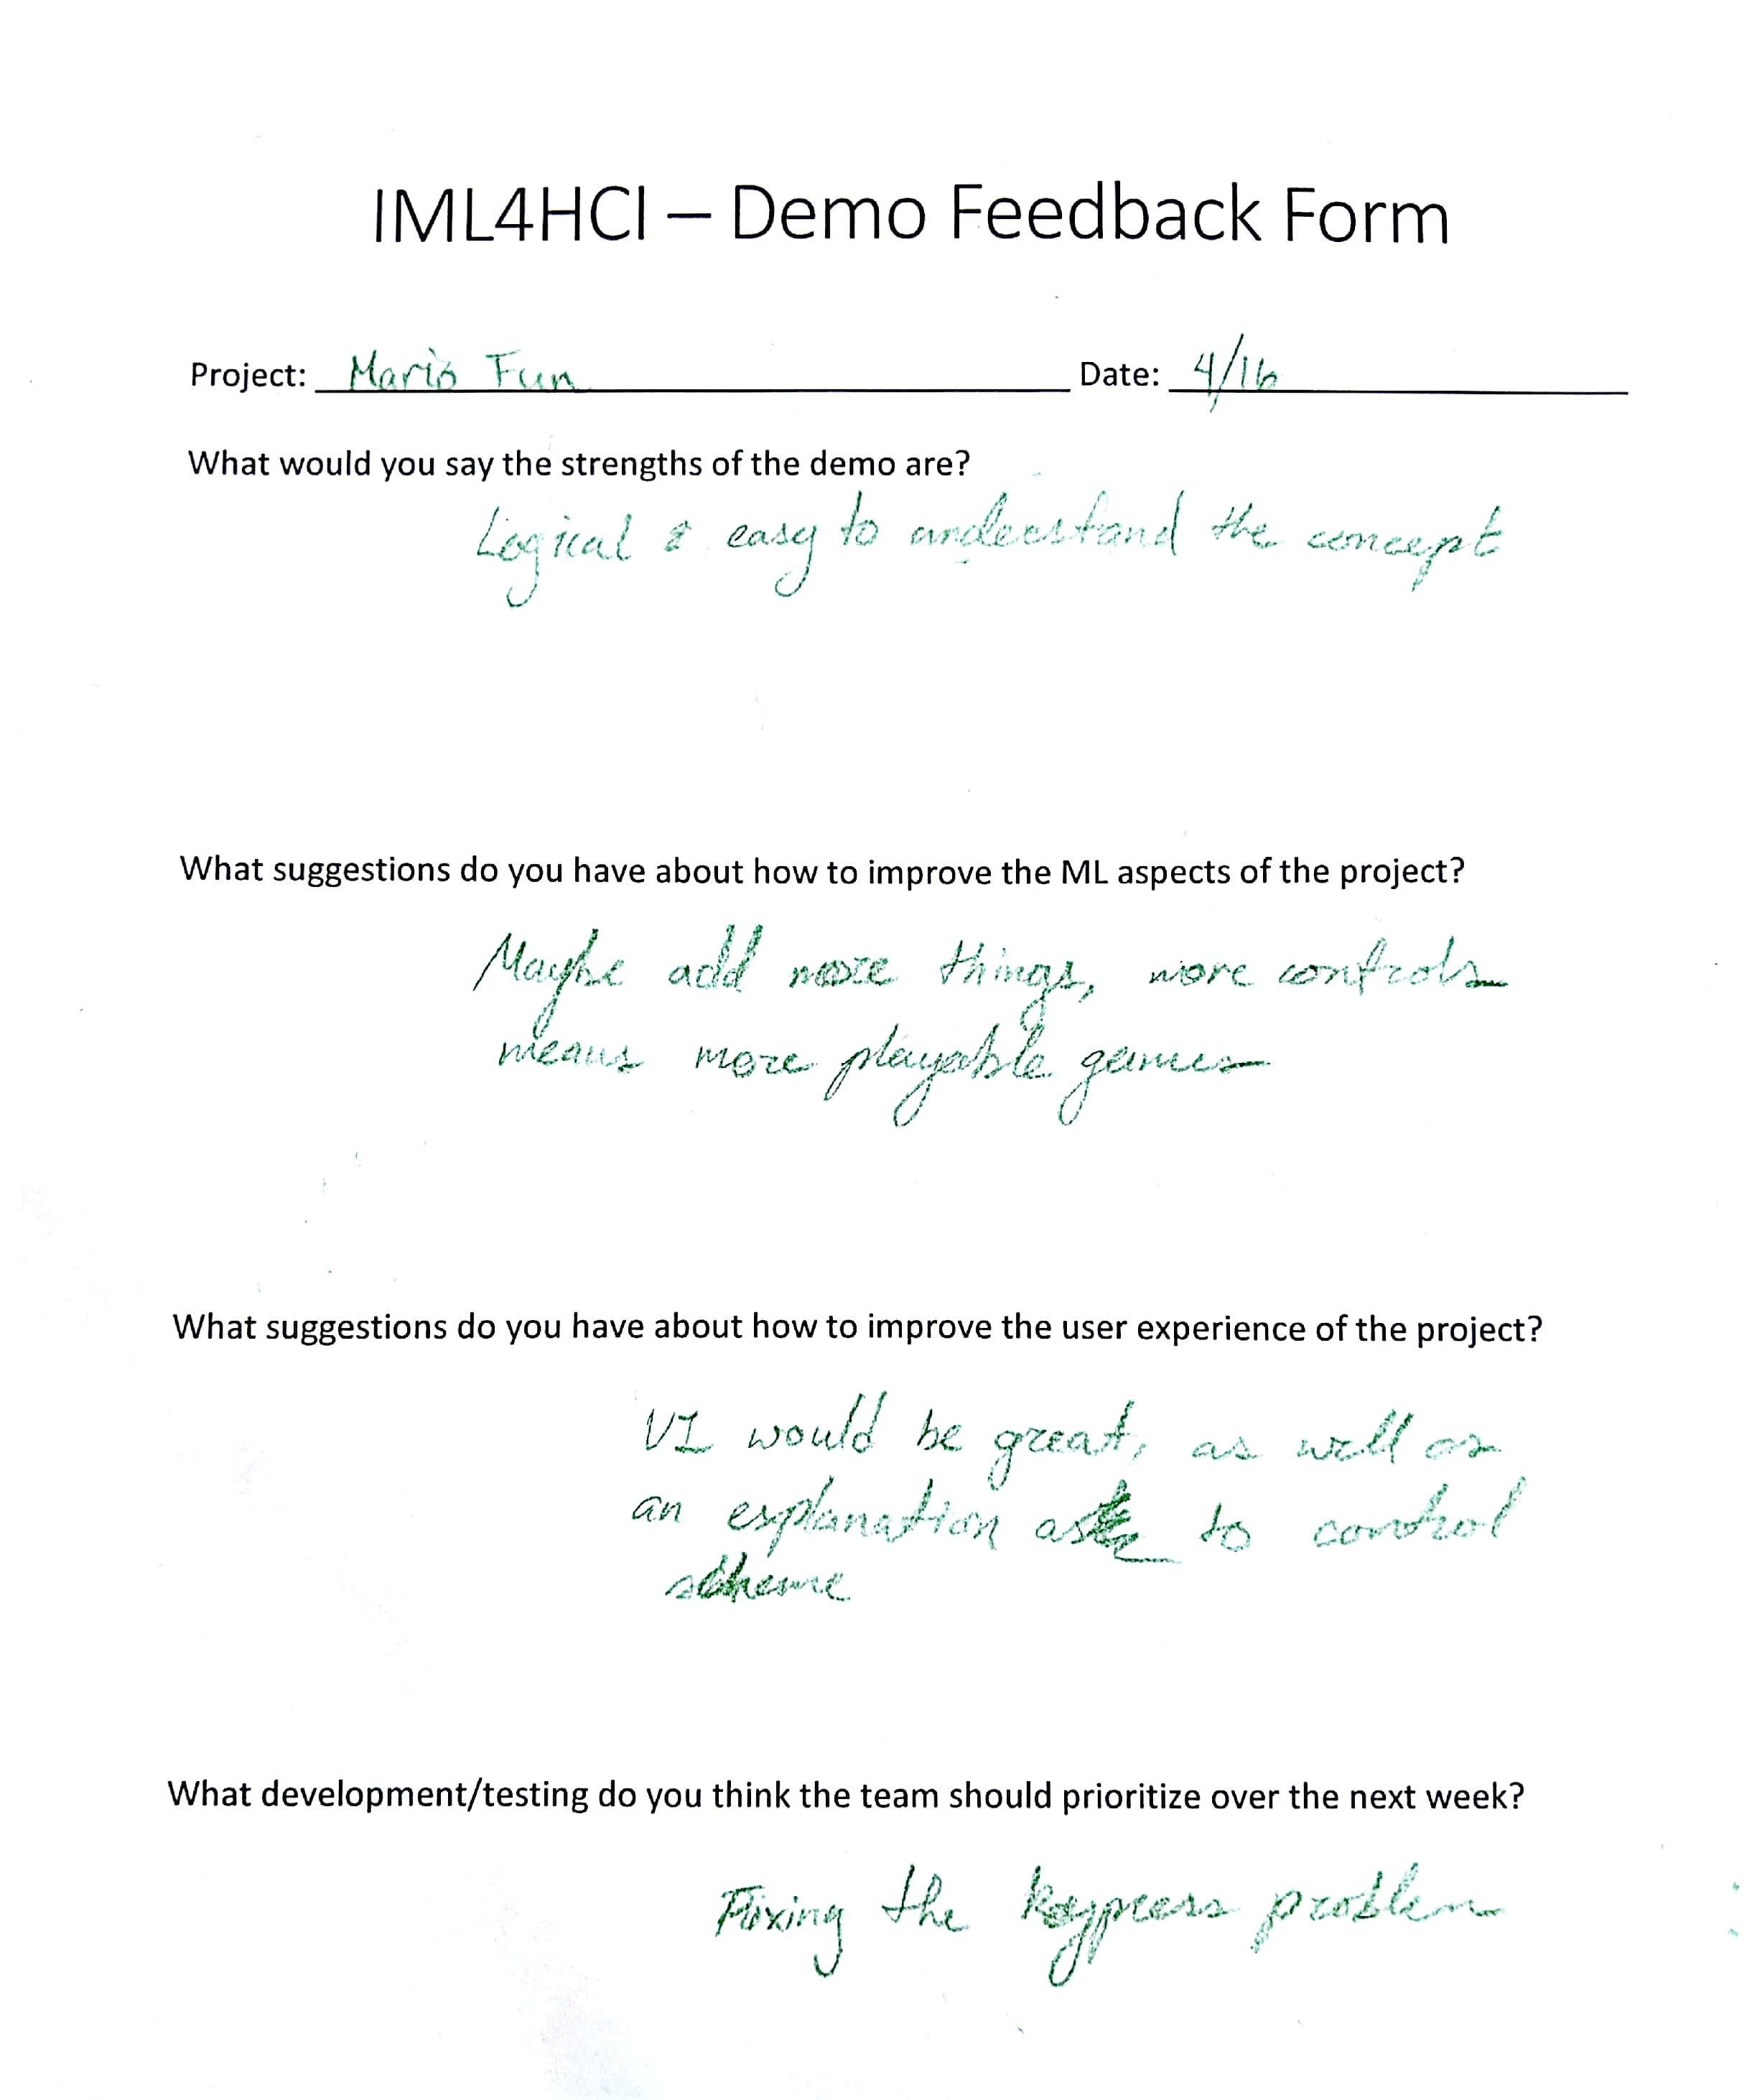 IML4HCI – Demo Feedback Form
Project: Mario Fun Date: 4/16
What would you say the strengths of the demo are?
Logical & easy to understand the concept
What suggestions do you have about how to improve the ML aspects of the project?
Maybe add more things, more controls
means more playable games
What suggestions do you have about how to improve the user experience of the project?
UI would be great, as well as
an explanation as to control
scheme
What development/testing do you think the team should prioritize over the next week?
Fixing the keypress problem